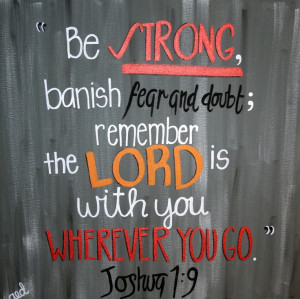 “Be STRONG,
banish fear and doubt;
remember
the LORD is
with you
WHEREVER YOU GO.”
Joshua 1:9